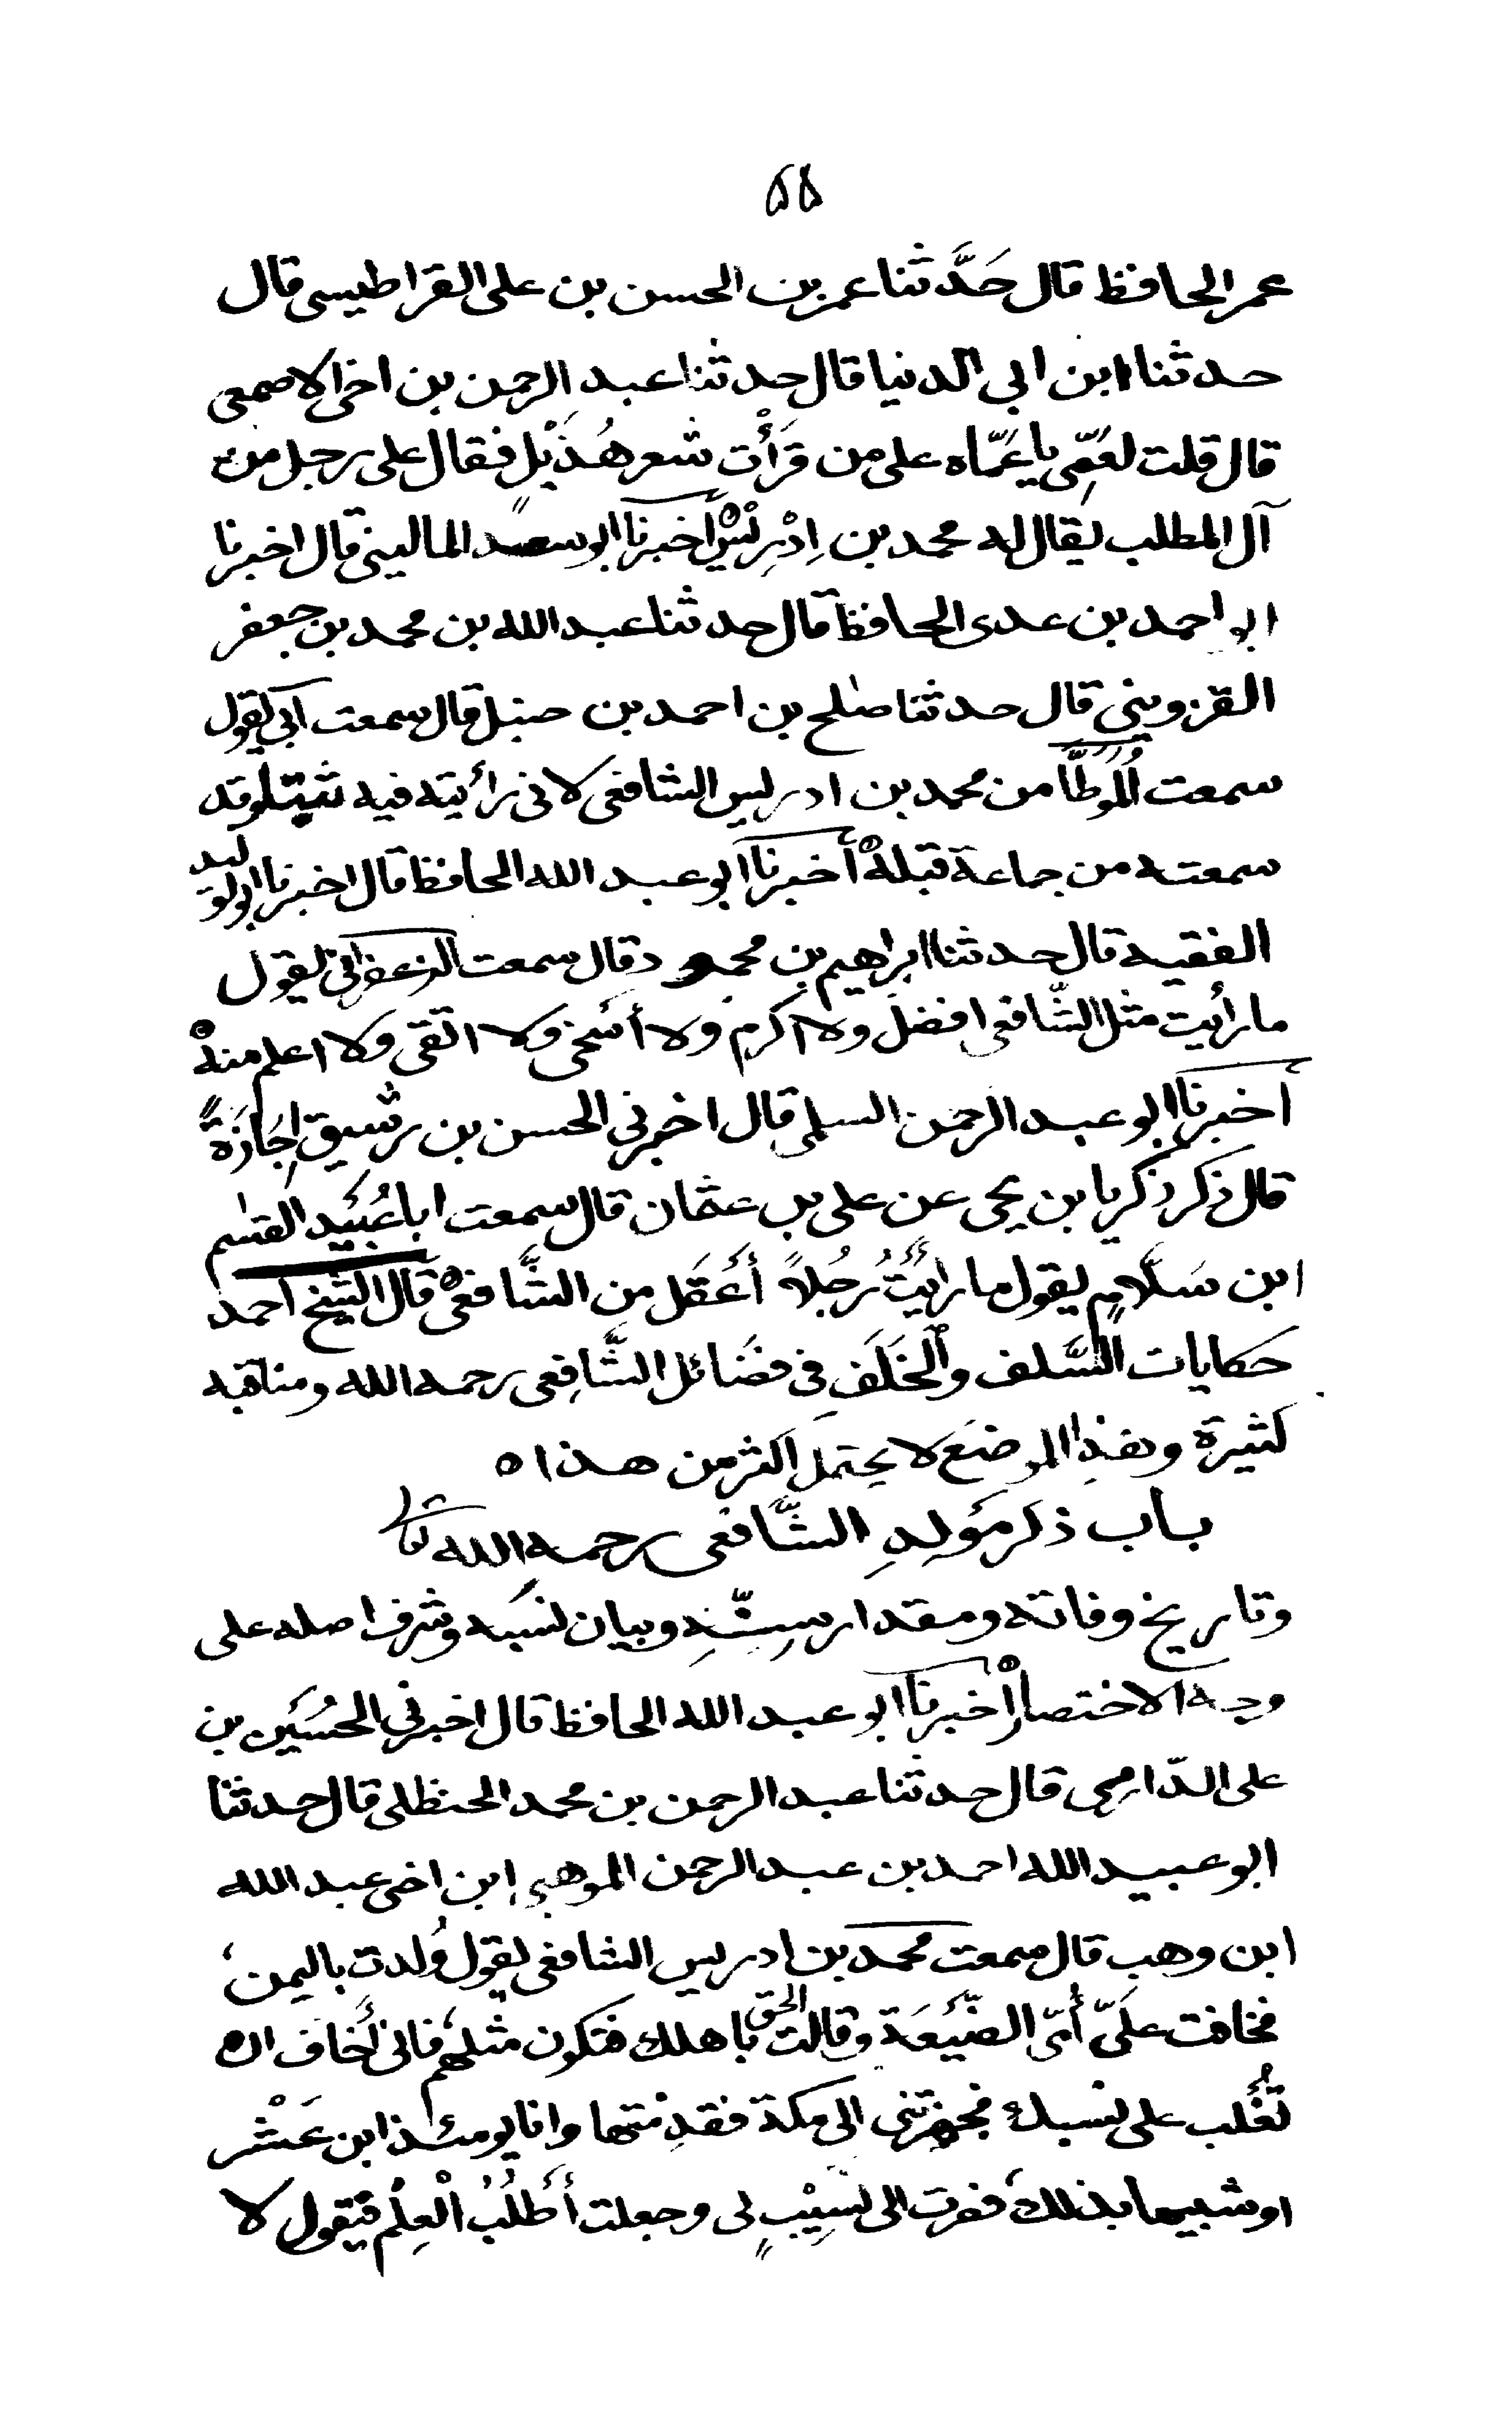 ٥٥
عمر الحافظ قال حَدَّثنا عمر بن الحسن بن على القراطيسى قال
حدثنا ابن ابى الدنيا قال حدثنا عبد الرحمن بن اخى الاصمعى
قال قلت لعَمِّى يا عَمَّاه على من قرَأْت شعر هُذَيْل فقال على رجل من
آل المطلب يقال له محمد بن اِدْرِيْس أخبرنا ابو سعدٍ المالينى قال اخبرنا
ابو احمد بن عدى الحافظ قال حدثنا عبد الله بن محمد بن جعفر
القزوينى قال حدثنا صٰلح بن احمد بن حنبل قال سمعت ابى يقول
سمعت المُوَطَّأ من محمد بن ادريس الشافعى لانى رأيته فيه ثبتا وقد
سمعته من جماعة قبلهْ أخبرنا ابو عبد الله الحافظ قال اخبرنا ابو الوليد
الفقيه قال حدثنا ابراهيم بن محمود قال سمعت الزعفرانى يقول
ما رأيت مثل الشَّافعى افضلَ ولا اكرم ولا أسْخى ولا اتقى ولا اعلم منهْ
أخبرنا ابو عبد الرحمن السلمى قال اخبرنى الحسن بن رشيق اِجَازَةً
قال ذكر زكريا بن يحى عن على بن عثمان قال سمعت ابا عُبَيْد القٰسم
ابن سَلَّامٍ يقول ما رايْتُ رَجُلاً أعْقَل من الشَّافعى قال الشيخ احمد
حكايات السَّلف والْخَلَفِ فى فضَائل الشَّافِعى رحمه الله ومناقبه
كثيرة وهٰذا الموضَع لا يحتمل اكثر من هذا ٥
باب ذكر مَوْلِدِ الشَّافعى رحمه الله تعالى
وتاريخ وفاته ومقدار سِنِّهِ وبيان نسَبه وشرف اصله على
وجه الاختصارْ أخبرنا ابو عبد الله الحافظ قال اخبرنى الحُسَيْن بن
على الدّارمِى قال حدثنا عبد الرحمن بن محمد الحنظلى قال حدثنا
ابو عبيد الله احمد بن عبد الرحمن الوهبى ابن اخى عبد الله
ابن وهب قال سمعت محمد بن ادريس الشافعى يقول وُلدت باليمن
فخافت علَىّ أمّى الضَّيْعَة وقالت الحق باهلك فتكون مثلهم فانى أخاف ان
تُغْلب على نسبك فجهزتنى الى مكة فقدِمتها وانا يومئذ ابن عَشْر
او شبيها بذلك فصرت الى نَسِيْبٍ لى وجعلت أطْلُبُ الْعِلْم فيقول لا